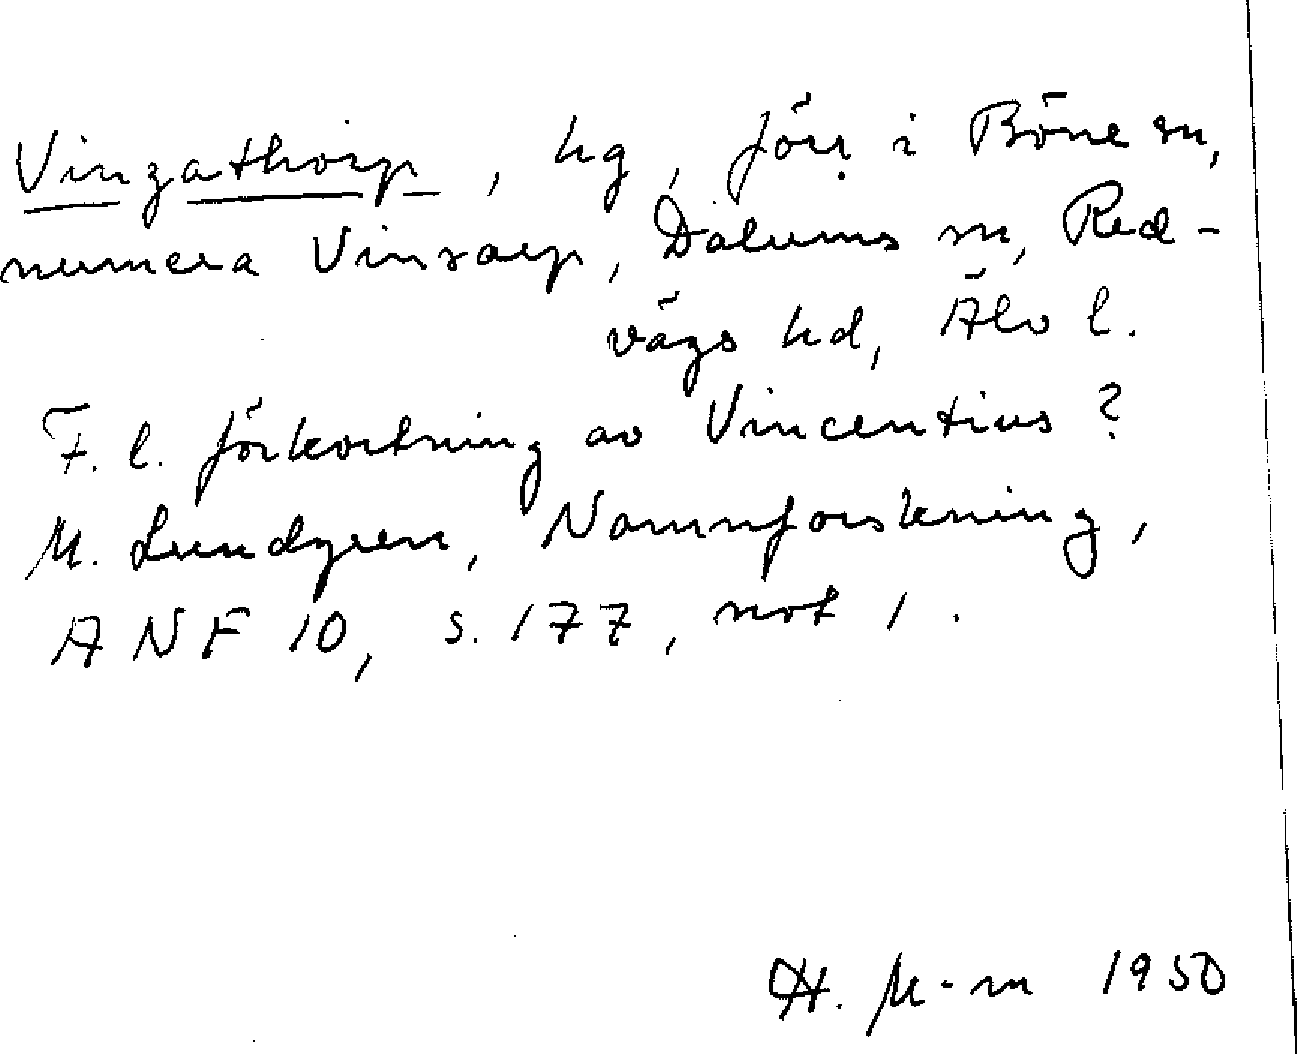 Vinzathorp, hg, förr i Böne sn,
numera Vinsarp, Dalums sn, Red-
vägs hd, Älv l.
F. l. förkortning av Vincentius ?
M. Lundgren, Namnforskning,
ANF 10, s. 177, not 1.
H. M-m 1950